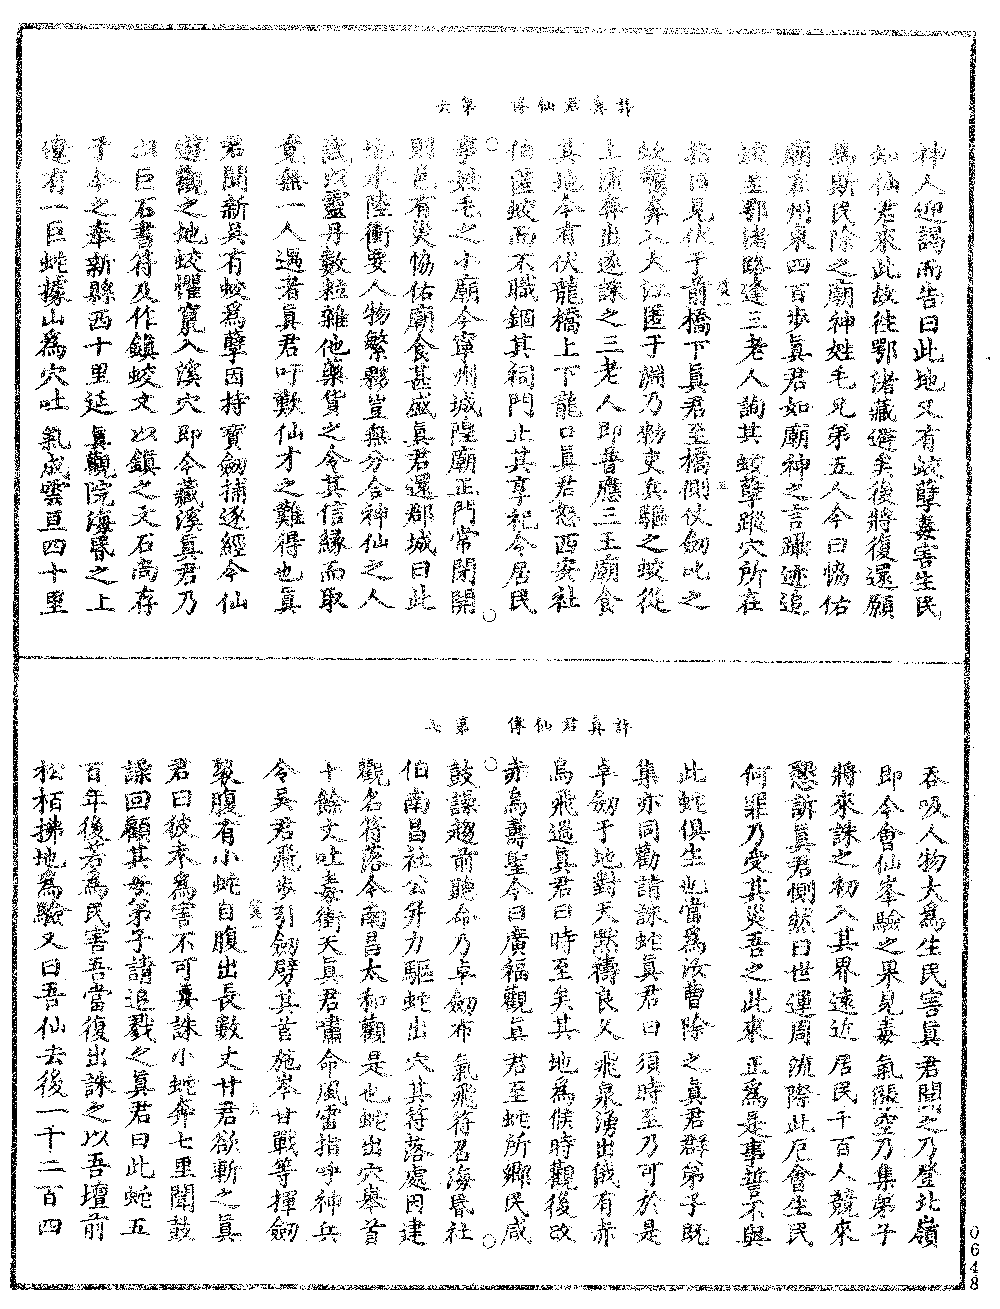 許真君仙傳　第六
神人迎謁而告曰此地又有蛟孽毒害生民
知仙君來此故往鄂渚藏避矣後將復還願
為斯民除之廟神姓毛兄弟五人今曰恊佑
廟袁州東四百步真君如廟神之言躡迹追
至鄂渚路逢三老人詢其蛟孽蹤穴所在
指曰見伏于前橋下真君至橋側仗劒叱之
蛟驚奔入大江匿于淵乃勑吏兵驅之蛟從
上流奔出遂誅之三老人即普應三王廟食
其地今有伏龍橋上下龍口真君怒西安社
伯匿蛟而不職錮其祠門止其享祀令居民
享姓毛之小廟今寧州城隍廟正門常閉開
則邑有災恊佑廟食甚盛真君還郡城曰此
地水陸衝要人物繁夥豈無分合神仙之人
試以靈丹數粒雜他藥貨之令其信緣而取
竟無一人遇者真君吁歎仙才之難得也真
君聞新吳有蛟為孽因持寶劒捕逐經今仙
遊觀之地蛟懼竄入溪穴即今藏溪真君乃
以巨石書符及作鎮蛟文以鎮之文石尚存
于今之奉新縣西十里延真觀院海昏之上
繚有一巨蛇據山為穴吐氣成雲亘四十里
許真君仙傳　第七
吞吸人物大為生民害真君聞之乃登北嶺
即今會仙峯驗之果見毒氣漲空乃集弟子
將來誅之初入其界遠近居民千百人競來
懇訴真君惻然曰世運周流際此厄會生民
何罪乃受其災吾之此來正為是事誓不與
此蛇俱生也當為汝曹除之真君群弟子既
集亦同勸請誅蛇真君曰須時至乃可於是
卓劒于地對天默禱良久飛泉湧出俄有赤
烏飛過真君曰時至矣其地為候時觀後改
赤烏壽聖今曰廣福觀真君至蛇所鄉民咸
鼓譟趨前聽命乃卓劒布氣飛符召海昏社
伯南昌社公併力驅蛇出穴其符落處因建
觀名符落今南昌太和觀是也蛇出穴舉首
十餘丈吐毒衝天真君嘯命風雷指呼神兵
令吳君飛步引劒劈其首施岑甘戰等揮劒
裂腹有小蛇自腹出長數丈甘君欲斬之真
君曰彼未為害不可妄誅小蛇奔七里聞鼓
譟回顧其母弟子請追戮之真君曰此蛇五
百年後若為民害吾當復出誅之以吾壇前
松栢拂地為驗又曰吾仙去後一千二百四
0648